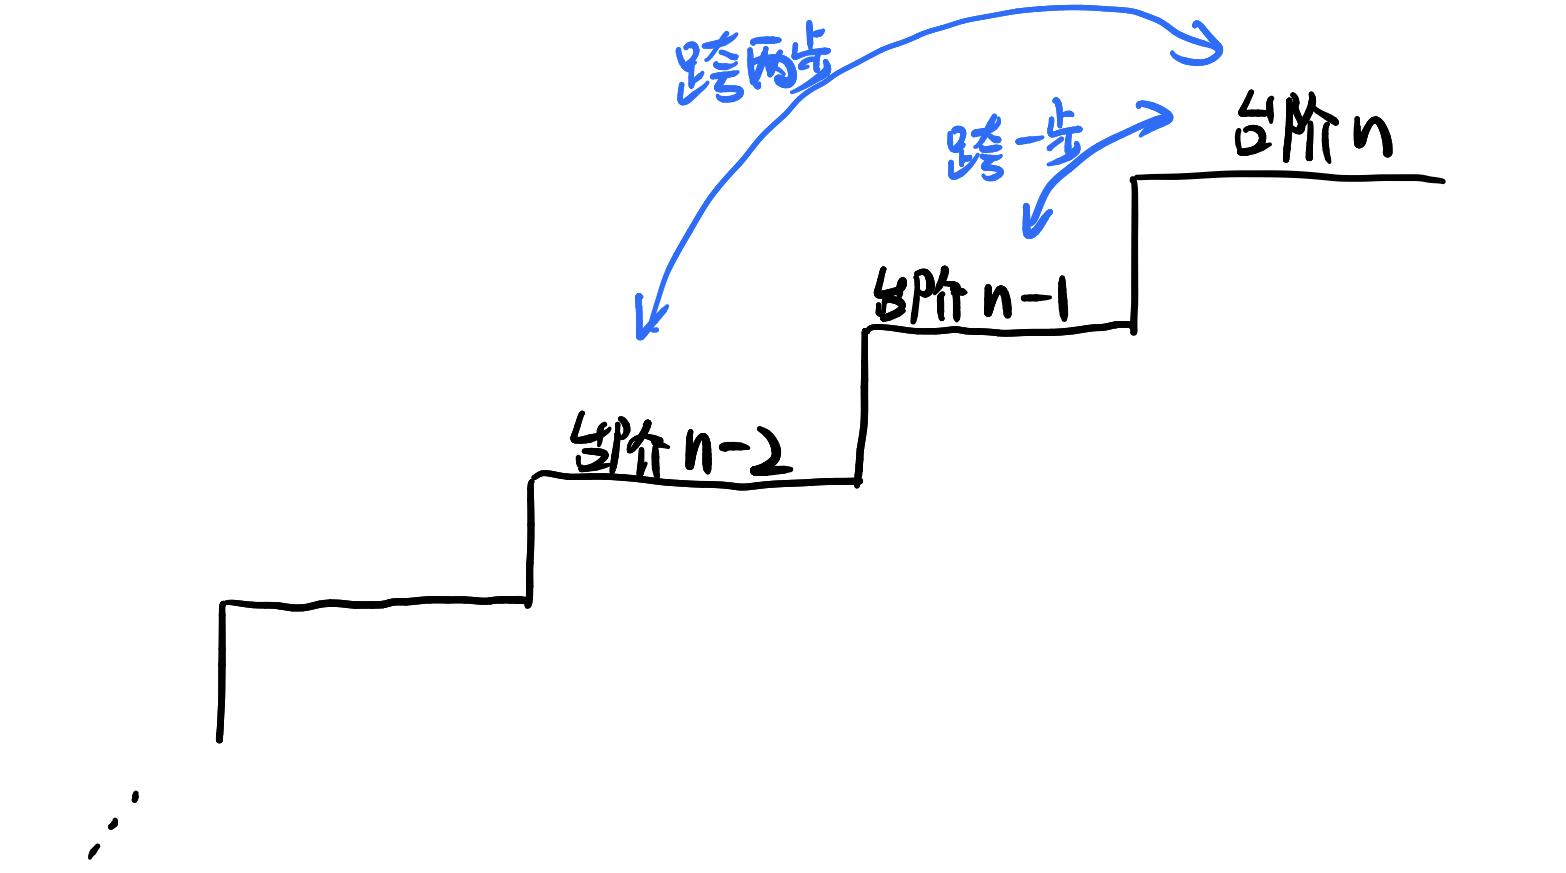 跨两步
跨一步
台阶 n
台阶 n-1
台阶 n-2